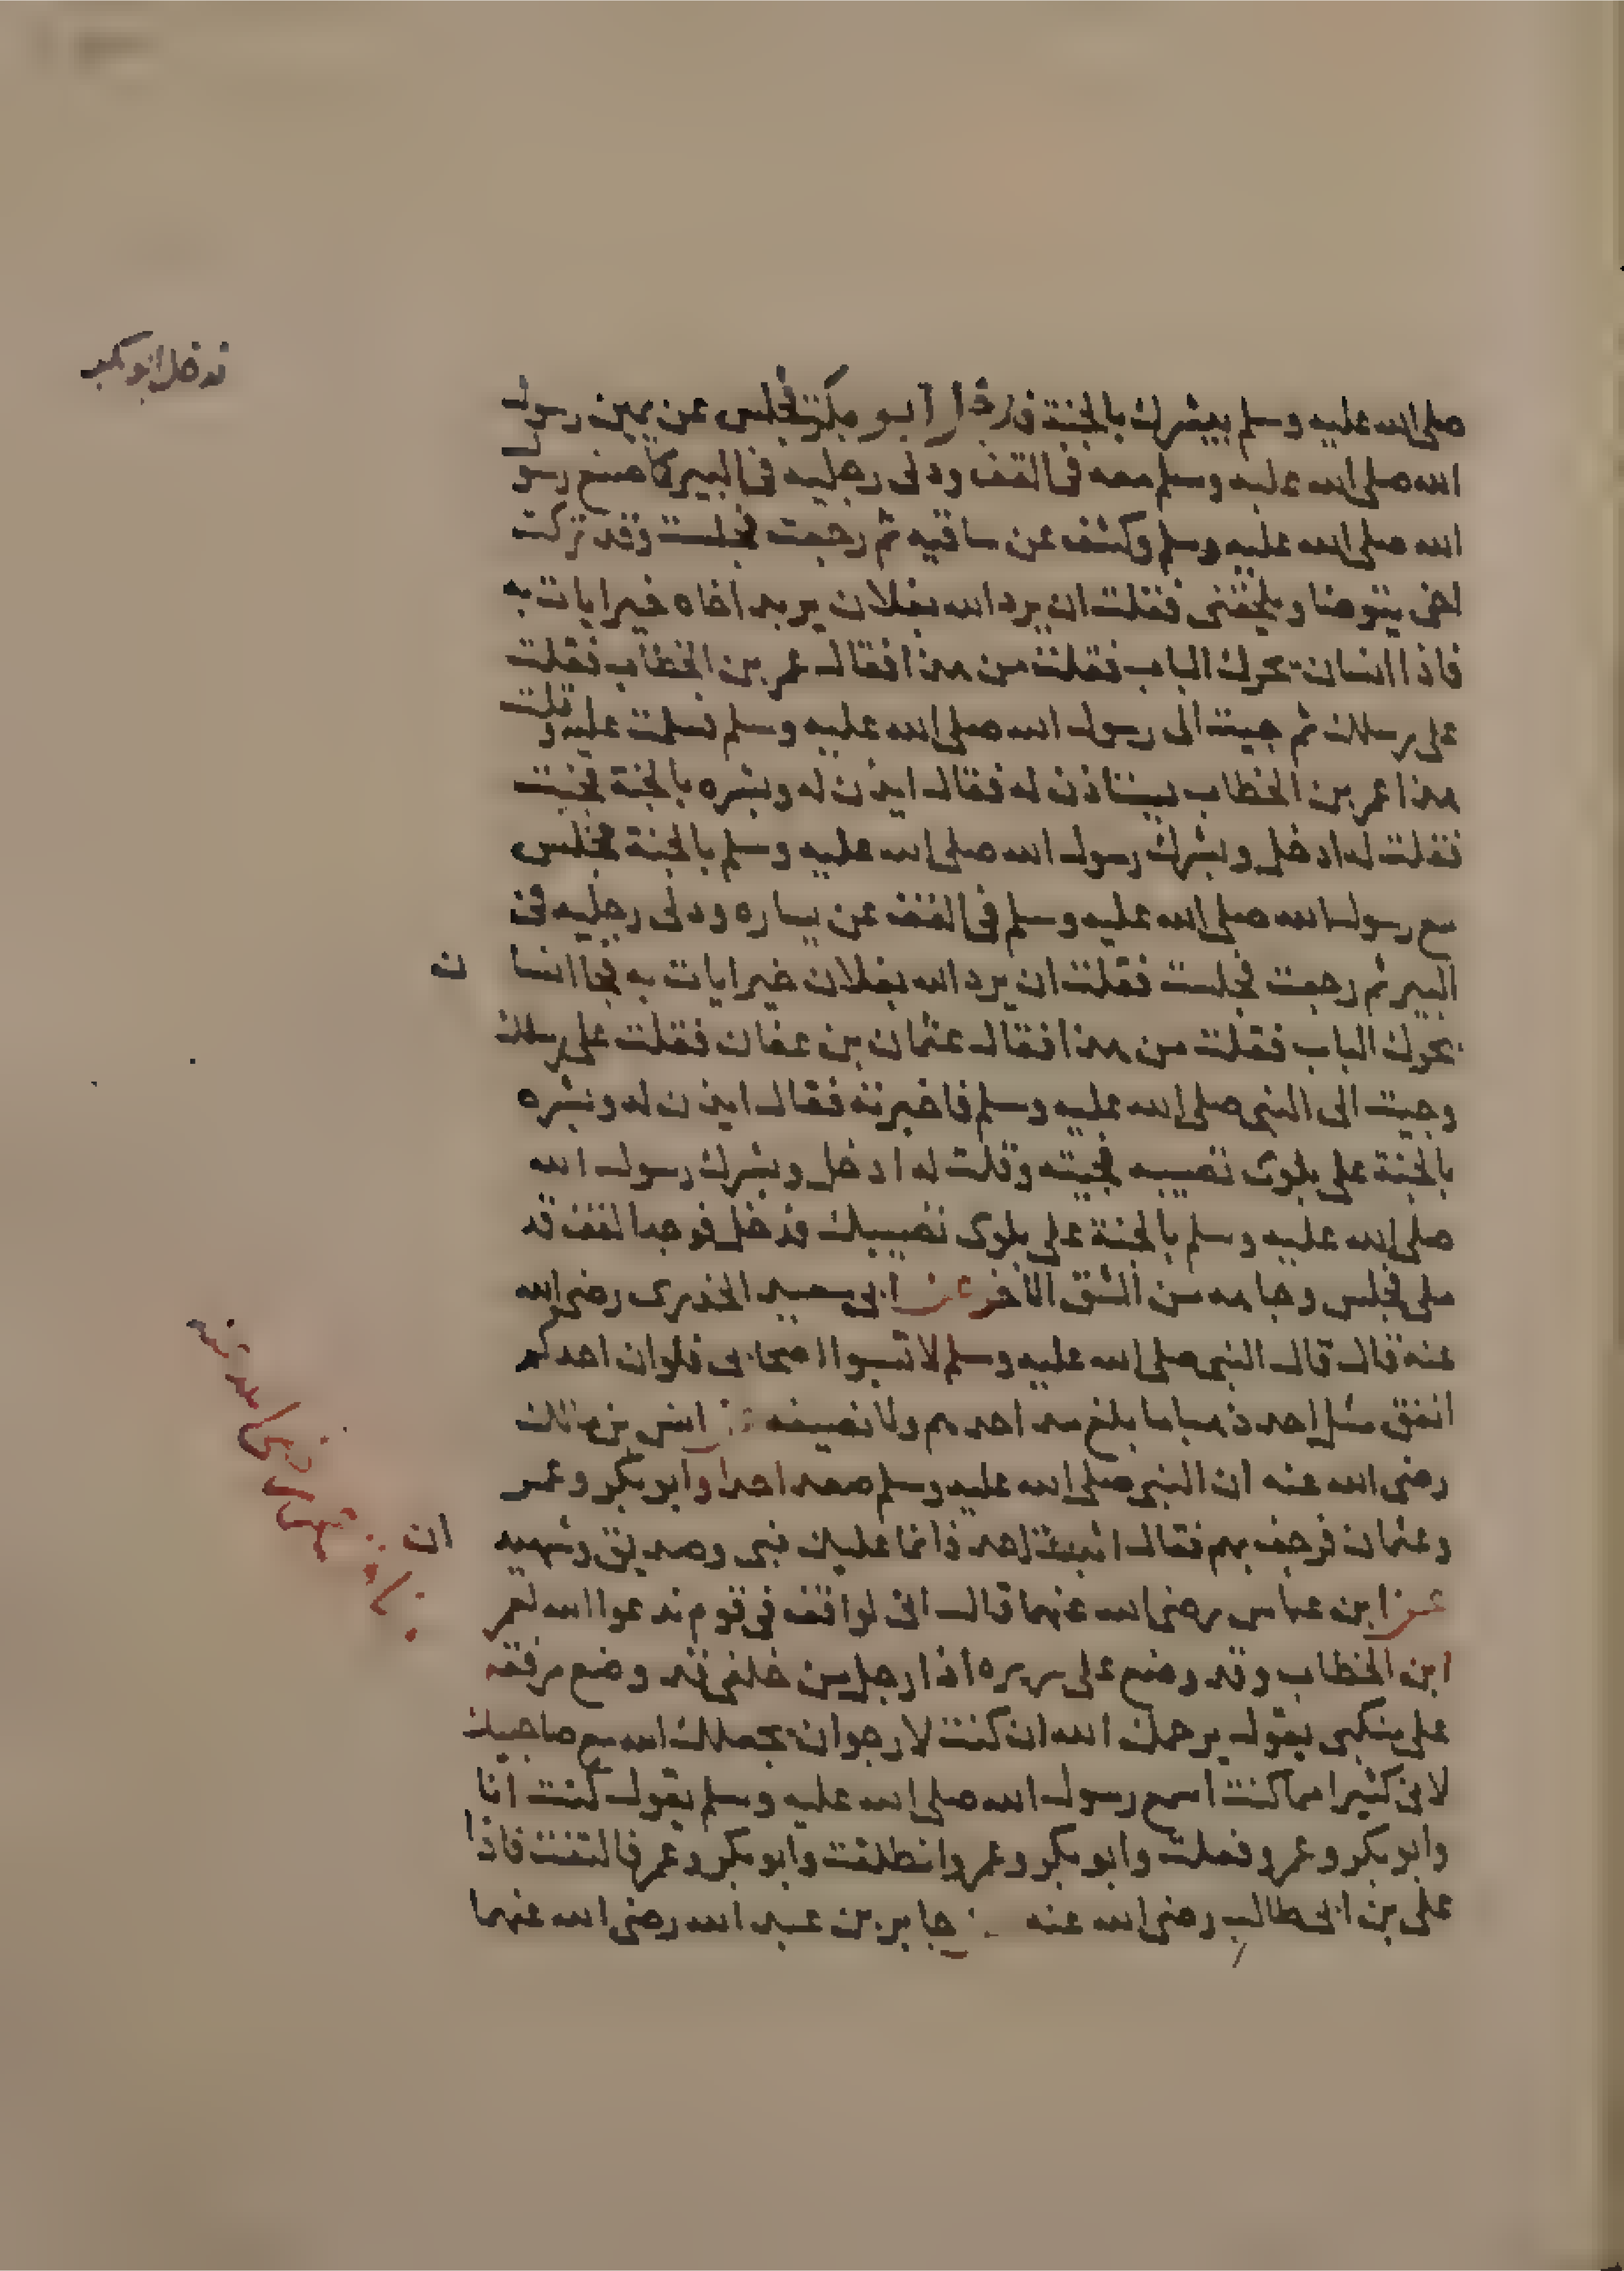 فدخل ابو بكر
صلى الله عليه وسلم يبشرك بالجنة فدخل ابو بكر فجلس عن يمين رسول
الله صلى الله عليه وسلم معه في القف ودلى رجليه في البير كما صنع رسول
الله صلى الله عليه وسلم وكشف عن ساقيه ثم رجعت فجلست وقد تركت
اخي يتوضا ويلحقني فقلت ان يرد الله بفلان يريد اخاه خيرا يات به
فاذا انسان يحرك الباب فقلت من هذا فقال عمر بن الخطاب فقلت
على رسلك ثم جيت الى رسول الله صلى الله عليه وسلم فسلمت عليه وقلت
هذا عمر بن الخطاب يستاذن له فقال ايذن له وبشره بالجنة فجيت
فقلت له ادخل وبشرك رسول الله صلى الله عليه وسلم بالجنة فجلس
مع رسول الله صلى الله عليه وسلم في القف عن يساره ودلى رجليه في
البير ثم رجعت فجلست فقلت ان يرد الله بفلان خيرا يات به فجا انسان
يحرك الباب فقلت من هذا فقال عثمان بن عفان فقلت على رسلك
وجيت الى النبي صلى الله عليه وسلم فاخبرته فقال ايذن له وبشره
بالجنة على بلوى تصيبه فجيته وقلت له ادخل وبشرك رسول الله
صلى الله عليه وسلم بالجنة على بلوى تصيبك فدخل فوجد القف قد
ملى فجلس وجاهه من الشق الاخر عن ابي سعيد الخدري رضي الله
عنه قال قال النبي صلى الله عليه وسلم لا تسبوا اصحابي فلوان احدكم
انفق مثل احد ذهبا ما بلغ مد احدهم ولا نصيفه عن انس بن مالك
رضي الله عنه ان النبي صلى الله عليه وسلم صعد احدا وابو بكر وعمر
وعثمان فرجف بهم فقال اثبت احد فانما عليك نبي وصديق وشهيدان
عن ابن عباس رضي الله عنهما قال اني لواقف في قوم ندعوا الله لعمر
ابن الخطاب وقد وضع على سريره اذا رجل من خلفي قد وضع مرفقه
على منكبي يقول يرحمك الله ان كنت لارجو ان يجعلك الله مع صاحبيك
لاني كثيرا مما كنت اسمع رسول الله صلى الله عليه وسلم يقول كنت انا
وابو بكر وعمر وفعلت وابو بكر وعمر وانطلقت وابو بكر وعمر فالتفت فاذا
على بن ابي طالب رضي الله عنه عن جابر بن عبد الله رضي الله عنهما